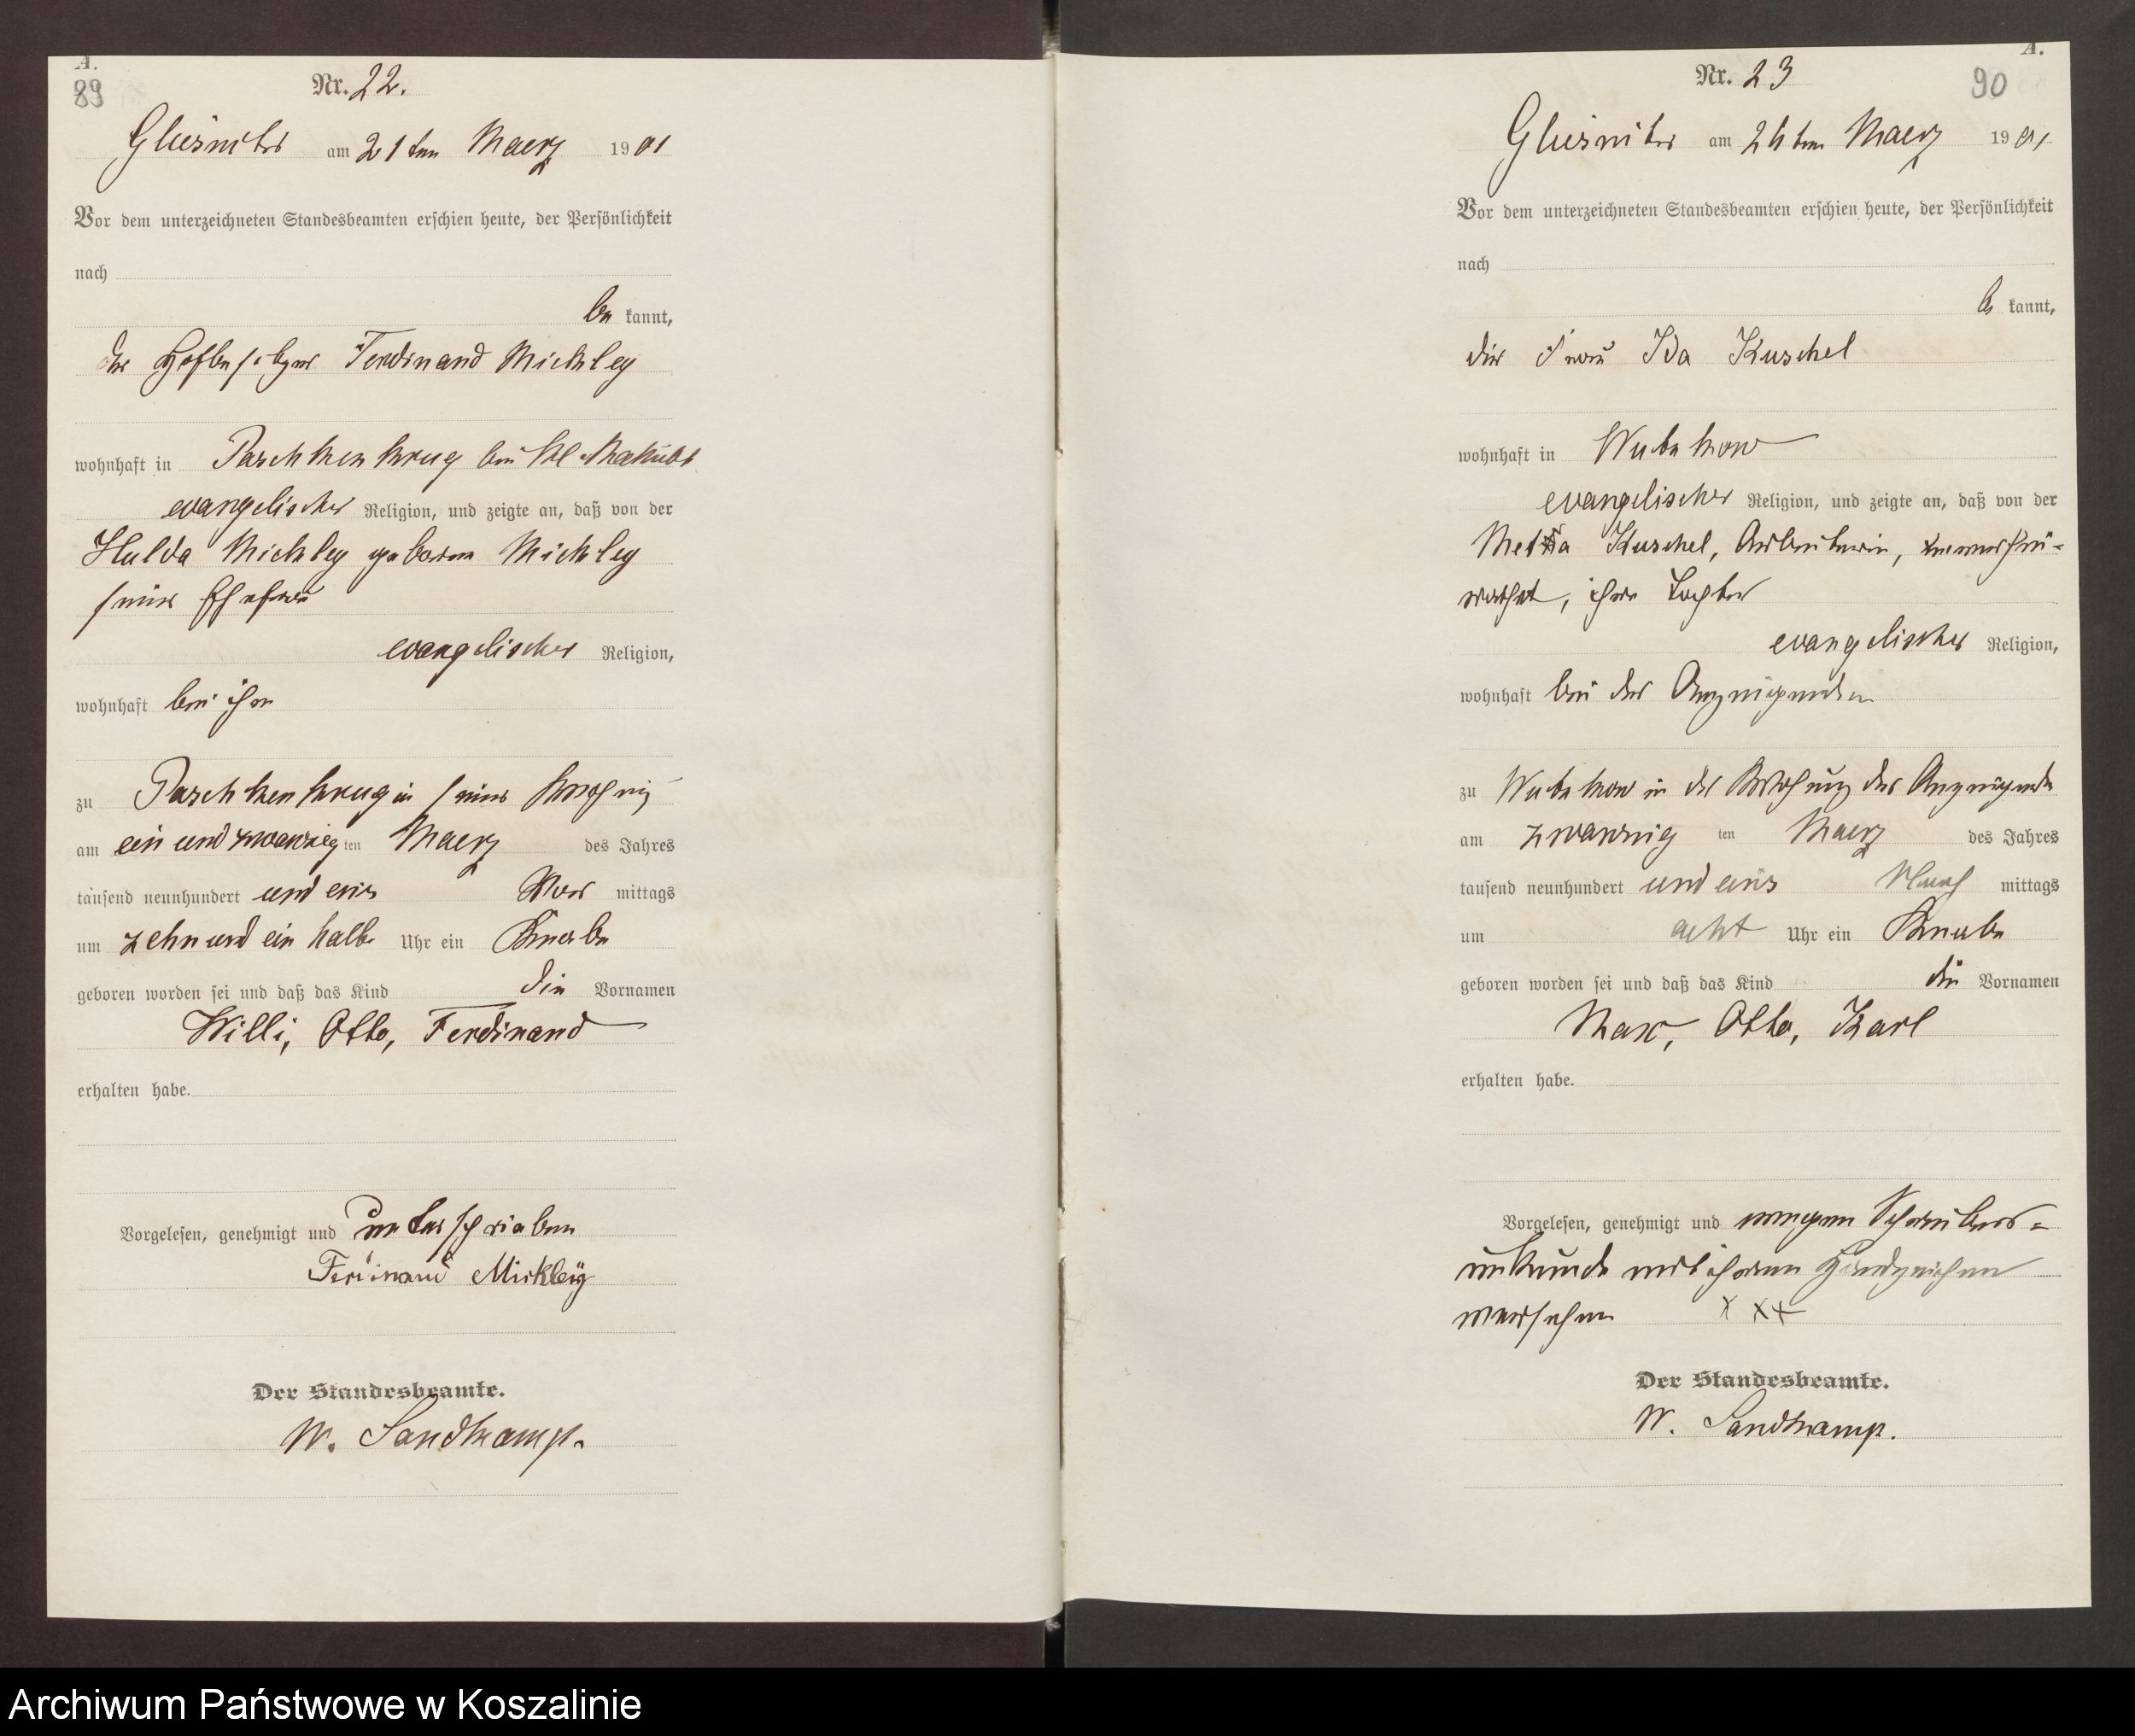 A.
89
Nr. 22.
Gliesnitz am 21ten Maerz 1901
Vor dem unterzeichneten Standesbeamten erschien heute, der Persönlichkeit
nach
be kannt,
der Hofbesitzer Ferdinand Mickley
wohnhaft in Paschkenkrug bei Kl.
evangelischer Religion, und zeigte an, daß von der
Hulda Mickley geborene Mickley
seiner Ehefrau
evangelischer Religion,
wohnhaft bei ihm
zu Paschkenkrug in seiner Wohnung
am ein und zwanzig ten Maerz des Jahres
tausend neunhundert und eins Vor mittags
um zehn und ein halb Uhr ein Knabe
geboren worden sei und daß das Kind die Vornamen
Willi, Otto, Ferdinand
erhalten habe.
Vorgelesen, genehmigt und unterschrieben
Ferdinand Mickley
Der Standesbeamte.
W. Sandkamp.
A.
90
Nr. 23
Gliesnitz am 26ten Maerz 1901
Vor dem unterzeichneten Standesbeamten erschien heute, der Persönlichkeit
nach
be kannt,
die Frau Ida Kuschel
wohnhaft in Wutzkow
evangelischer Religion, und zeigte an, daß von der
Meta Kuschel, Arbeiterin, unverhei-
rathet, ihre Tochter
evangelischer Religion,
wohnhaft bei der Anzeigenden
zu Wutzkow in der Wohnung der Anzeigende
am zwanzig ten Maerz des Jahres
tausend neunhundert und eins Nach mittags
um acht Uhr ein Knabe
geboren worden sei und daß das Kind die Vornamen
Max, Otto, Karl
erhalten habe.
Vorgelesen, genehmigt und wegen Schreibens-
unkunde mit ihrem Handzeichen
versehen x x x
Der Standesbeamte.
W. Sandkamp.
Archiwum Państwowe w Koszalinie